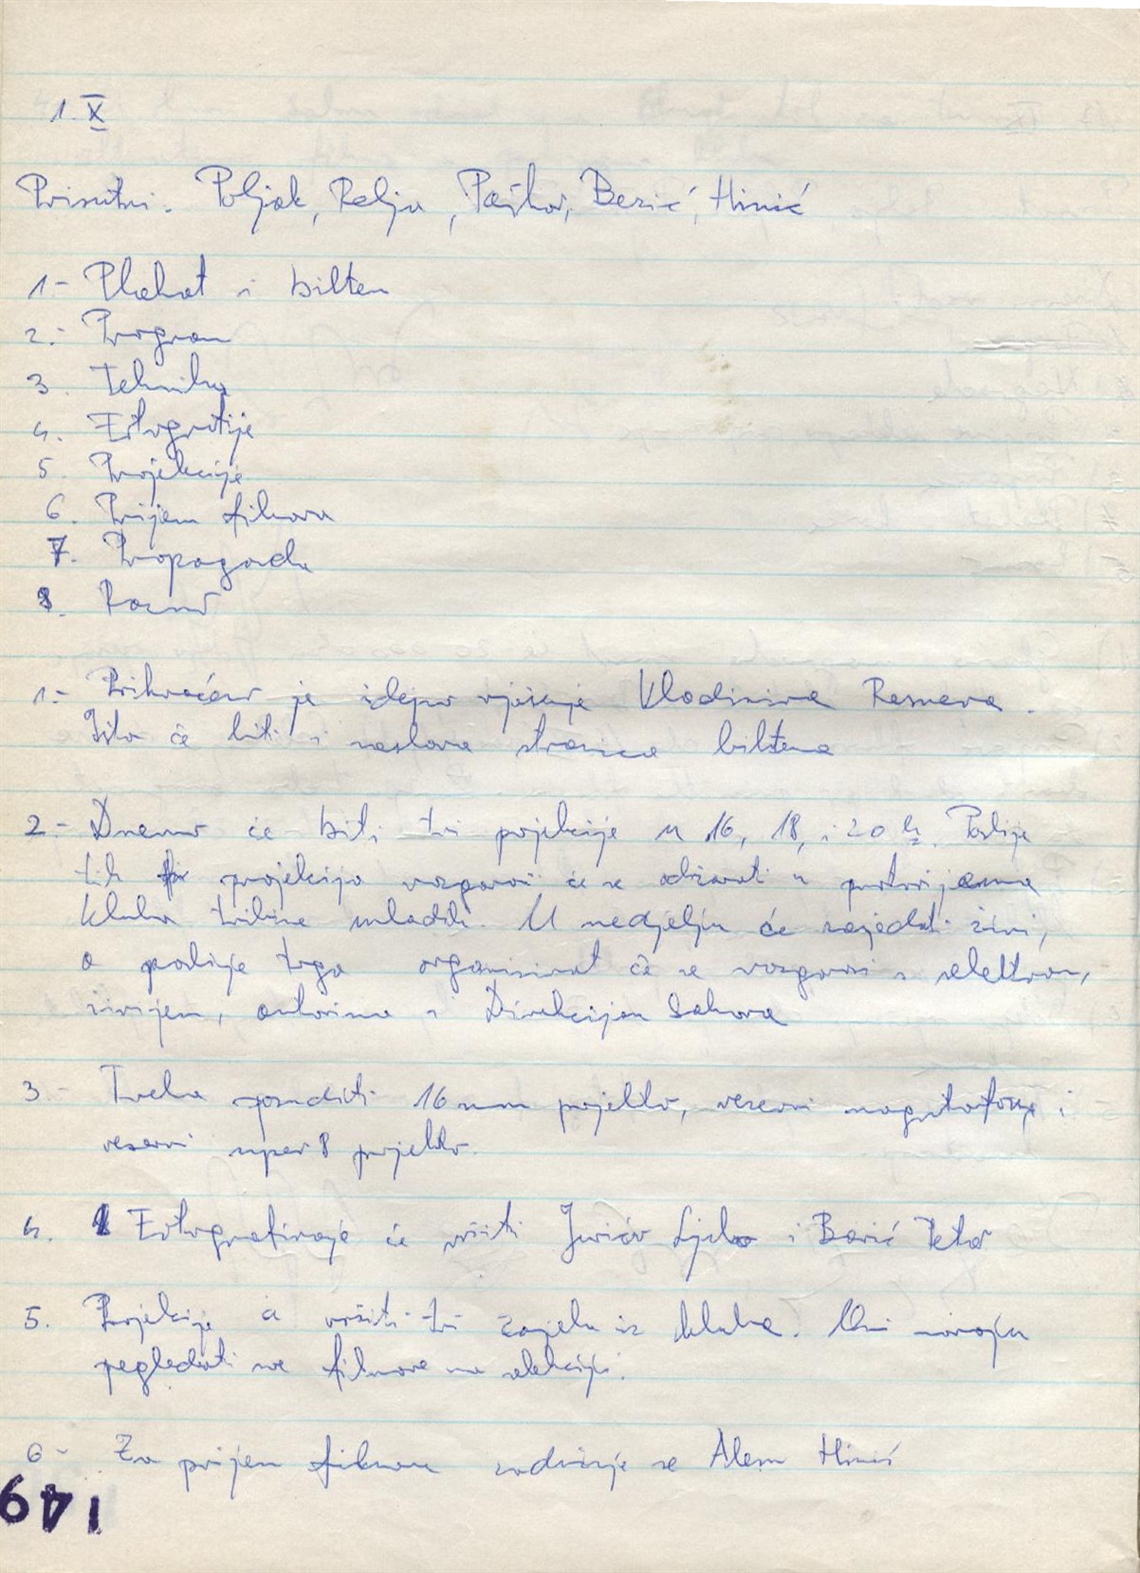 1. X
Prisutni. Poljak, Relja, Pajkov, Berić, Hinić
1- Plakat i bilten
2.- Program
3. Tehnika
4. Fotografije
5. Projekcije
6. Prijem filmova
7. Propaganda
8. Razno
1.- Prihvaćeno je idejno rješenje Vladimira
Isto će biti i naslovna stranica biltena
2.- Dnevno će biti tri projekcije u 16, 18, i 20 h. Poslije
tih projekcija razgovori će se održavati u prostorijama
kluba tribine mladih. U nedjelju će zasjedati žiri,
a poslije toga organizirat će se razgovori s selektorom,
žirijem, autorima i Direkcijom Sabora
3.- Treba posuditi 16 mm projektor, rezervni magnetofon i
rezervni super 8 projektor.
4. Fotografiranje će vršiti Ljubo i Barić Petar
5. Projekcije će vršiti tri iz kluba. Oni moraju
pogledati sve filmove na selekciji.
6- Za prijem filmova zadužuje se Alem Hinić
149